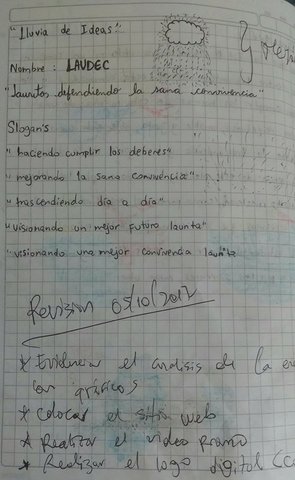 "Lluvia de Ideas".
Nombre : LAUDEC
"lauritos defendiendo la sana convivencia"
Slogan's
" haciendo cumplir los deberes"
" mejorando la sana convivencia"
" trascendiendo día a día"
" visionando un mejor futuro launita"
" visionando una mejor convivencia launita
Revision 05/10/2017
* Evidenciar el analisis de la en
con gráficos
* Colocar el sitio web
* Realizar el video promo
* Realizar el logo digital (Co